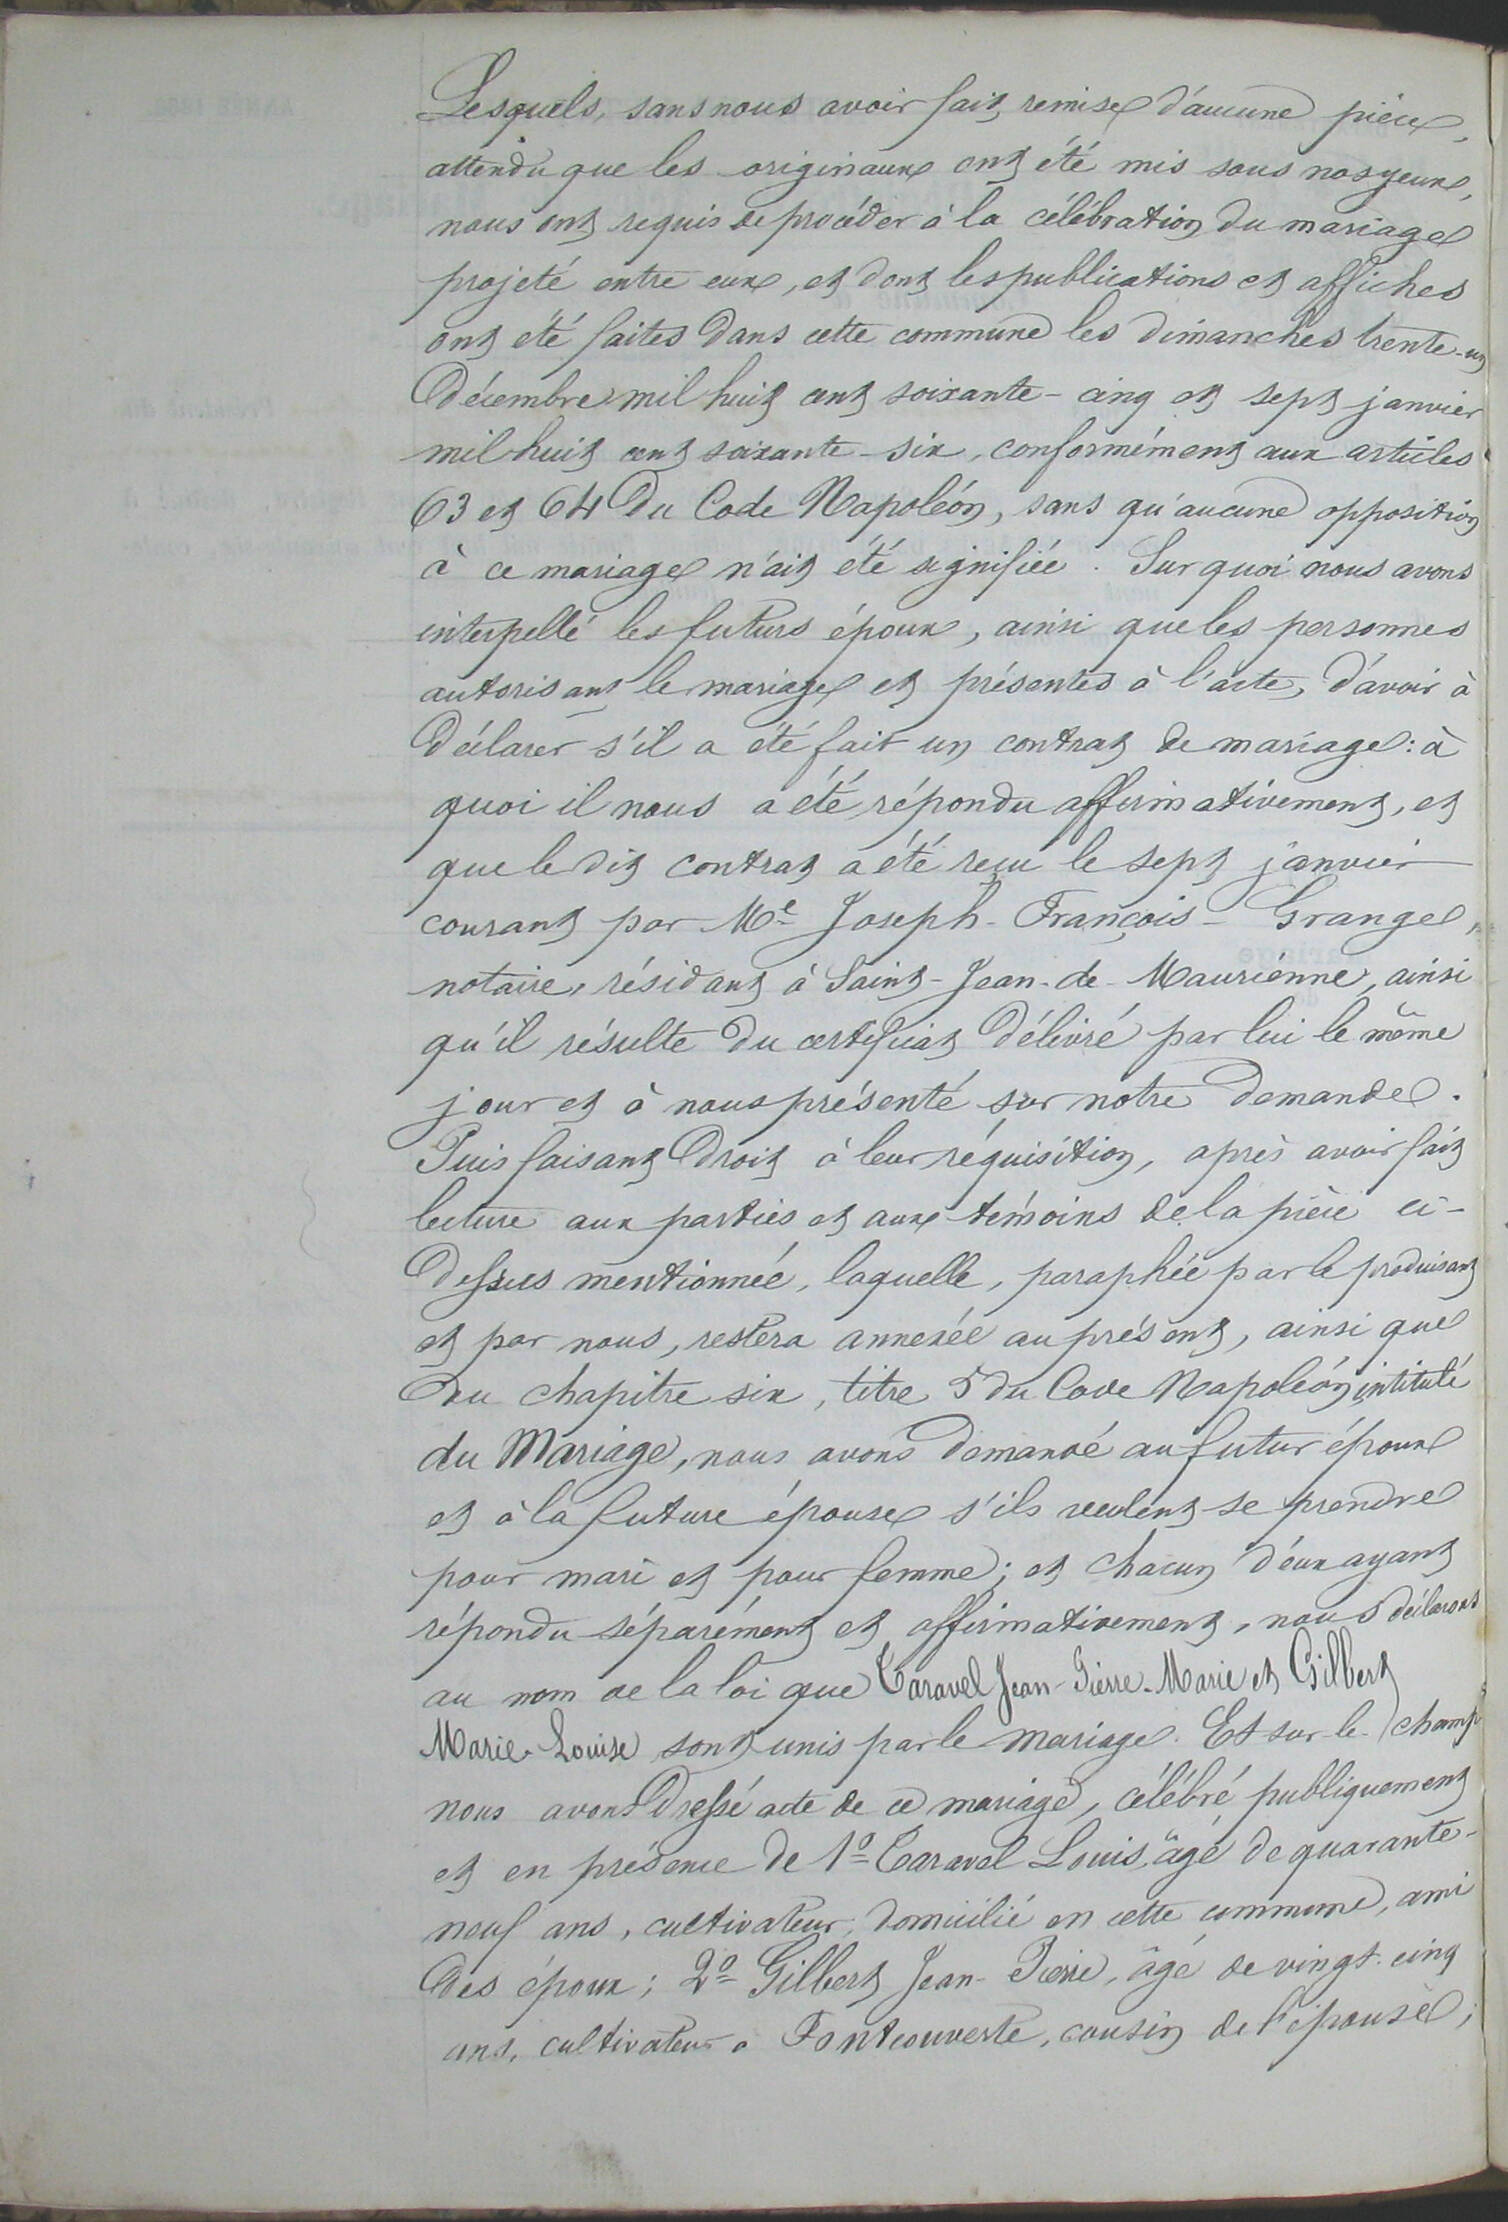 Lesquels, sans nous avoir fait remise d'aucune pièce,
attendu que les originaux ont été mis sous nos yeux,
nous ont requis de procéder à la célébration du mariage
projeté entre eux, et dont les publications et affiches
ont été faites dans cette commune les dimanches trente-un
décembre mil huit cent soixante-cinq et sept janvier
mil huit cent soixante-six, conformément aux articles
63 et 64 du Code Napoléon, sans qu'aucune opposition
à ce mariage n'ait été signifiée. Sur quoi nous avons
interpellé les futurs époux, ainsi que les personnes
autorisant le mariage et présentes à l'acte, d'avoir à
déclarer s'il a été fait un contrat de mariage: à
quoi il nous a été répondu affirmativement, et
que le dit contrat a été reçu le sept janvier
courant par Me Joseph-François Grange,
notaire, résidant à Saint-Jean-de-Maurienne, ainsi
qu'il résulte du certificat délivré par lui le même
jour et à nous présenté sur notre demande.
Puis faisant droit à leur réquisition, après avoir fait
lecture aux parties et aux témoins de la pièce ci-
dessus mentionnée, laquelle, paraphée par le produisant
et par nous, restera annexée au présent, ainsi que
du chapitre six, titre 5 du Code Napoléon intitulé
du Mariage, nous avons demandé au futur époux
et à la future épouse s'ils veulent se prendre
pour mari et pour femme; et chacun d'eux ayant
répondu séparément et affirmativement, nous déclarons
au nom de la loi que Taravel Jean-Pierre-Marie et Gilbert
Marie-Louise sont unis par le mariage. Et sur-le-champ
nous avons dressé acte de ce mariage, célébré publiquement
et en présence de 1º Taravel Louis, âgé de quarante-
neuf ans, cultivateur, domicilié en cette commune, ami
des époux; 2º Gilbert Jean-Pierre, âgé de vingt-cinq
ans, cultivateur à Fontcouverte, cousin de l'épouse;